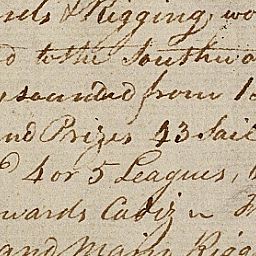 nels & Rigging, wo
d to the Southwa
sounded from 1
nd Prizes 43 Sail
d 4 or 5 Leagues,
owards Cadiz
and Main Rigg